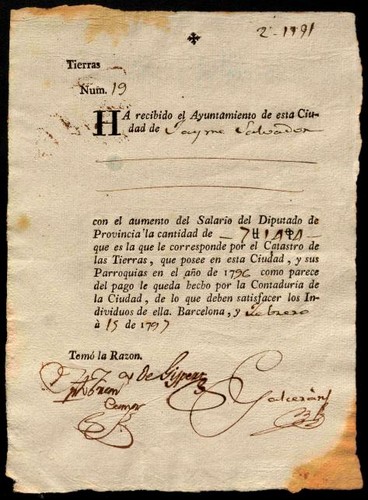 Tierras
Num. 19
HA recibido el Ayuntamiento de esta Ciu-
dad de Jayme Salvador
con el aumento del Salario del Diputado de
Provincia la cantidad de
que es la que le corresponde por el Catastro de
las Tierras, que posee en esta Ciudad, y sus
Parroquias en el año de 1796 como parece
del pago le queda hecho por la Contaduria de
la Ciudad, de lo que deben satisfacer los In-
dividuos de ella. Barcelona, y Febrero
à 15 de 1797
Temó la Razon.
Galcerán